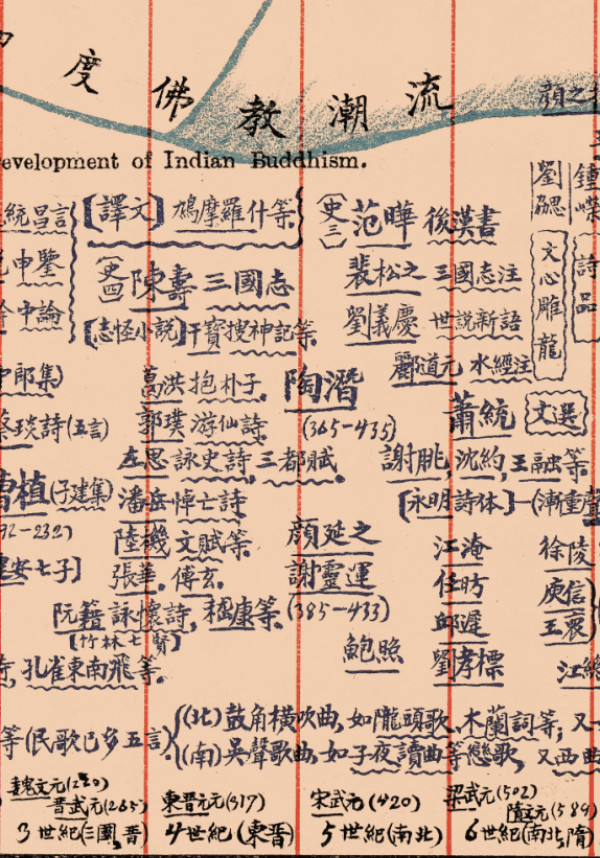 度佛教潮流
evelopment of Indian Buddhism.
顏之
劉勰
鍾嶸
文心雕龍
詩品
統昌言
申鑒
中論
[譯文] 鳩摩羅什等
(史四) 陳壽 三國志
[志怪小說] 干寶搜神記等
(史三) 范曄 後漢書
裴松之 三國志注
劉義慶 世説新語
酈道元 水經注
中郎集)
蔡琰詩(五言)
曹植(子建集)
92-232)
建安七子]
葛洪抱朴子.
郭璞游仙詩.
左思詠史詩,三都賦.
潘岳悼亡詩
陸機文賦等.
張華.傅玄.
阮籍詠懷詩,嵇康等.
[竹林七賢]
陶潛
(365-435)
顏延之
謝靈運
(385-433)
鮑照
蕭統 文選
謝朓,沈約,王融等.
[永明詩体]—(漸重聲
江淹
任昉
邱遲
劉孝標
徐陵
庾信
王褒
江總
孔雀東南飛等.
等(民歌已多五言)
(北)鼓角橫吹曲,如隴頭歌、木蘭詞等;又
(南)吳聲歌曲,如子夜讀曲等戀歌,又西曲
魏文元(220)
晋武元(265)
東晋元元(317)
宋武元(420)
梁武元(502)
隋文元(589)
3世紀(三國,晋)
4世紀(東晋)
5世紀(南北)
6世紀(南北,隋)